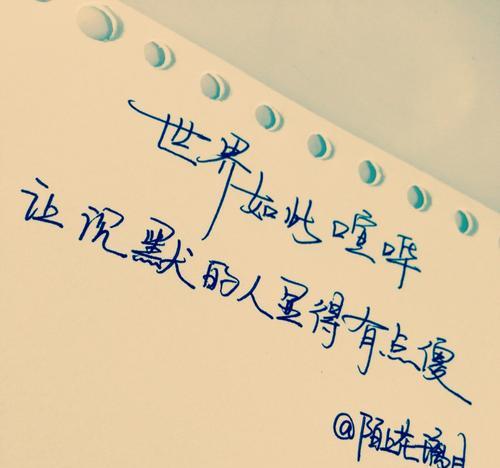 世界如此喧哗
让沉默的人显得有点傻
@陌上花漓日